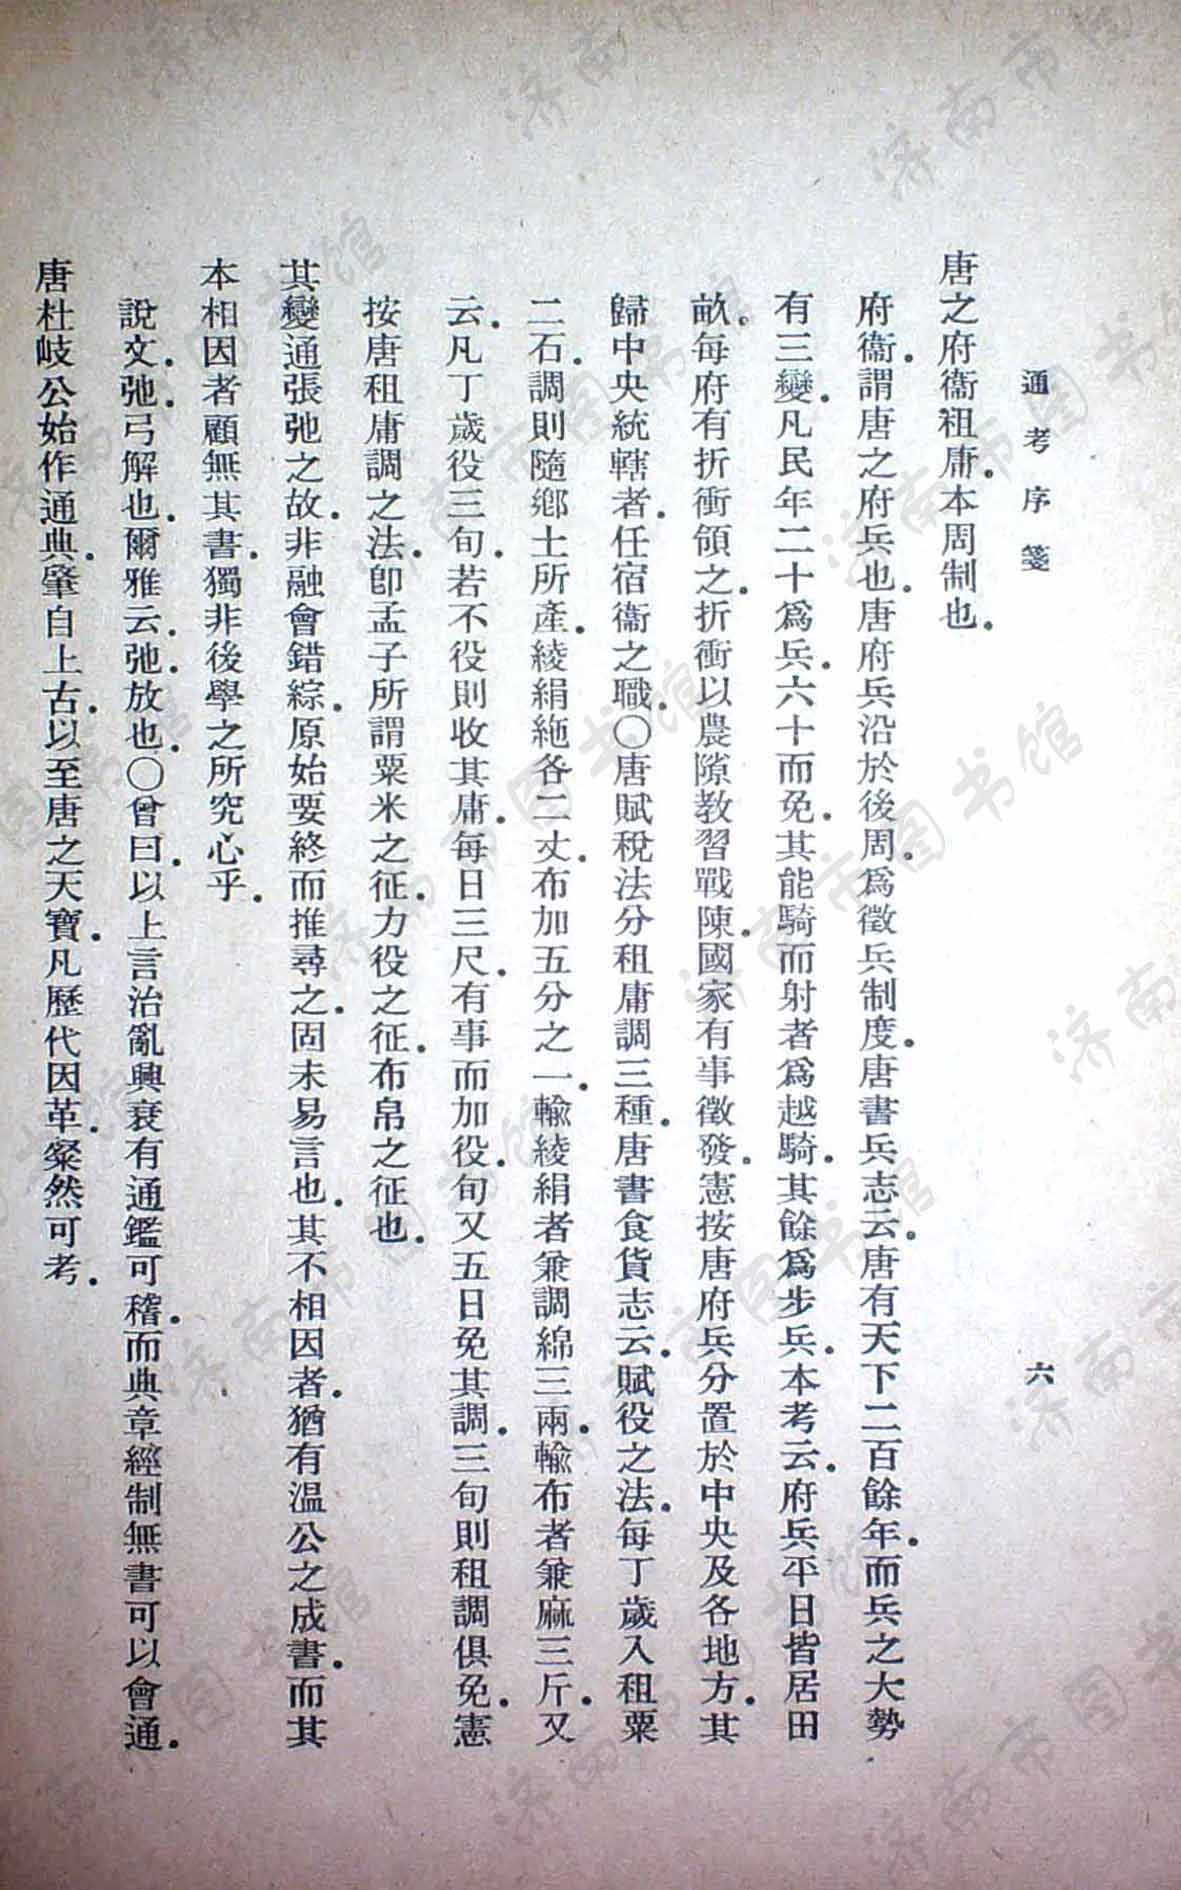 通考序箋
六
唐之府衞租庸．本周制也．
府衞．謂唐之府兵也．唐府兵沿於後周．爲徵兵制度．唐書兵志云．唐有天下二百餘年．而兵之大勢
有三變．凡民年二十爲兵．六十而免．其能騎而射者爲越騎．其餘爲步兵．本考云．府兵平日皆居田
畝。每府有折衝領之．折衝以農隙教習戰陳．國家有事徵發．憲按唐府兵分置於中央及各地方．其
歸中央統轄者．任宿衞之職．〇唐賦稅法分租庸調三種．唐書食貨志云．賦役之法．每丁歲入租粟
二石．調則隨鄉土所產．綾絹絁各二丈．布加五分之一．輸綾絹者兼調綿三兩．輸布者兼麻三斤．又
云．凡丁歲役三旬．若不役則收其庸．每日三尺．有事而加役．旬又五日免其調．三旬則租調俱免．憲
按唐租庸調之法．卽孟子所謂粟米之征．力役之征．布帛之征也．
其變通張弛之故．非融會錯綜．原始要終而推尋之．固未易言也．其不相因者．猶有溫公之成書．而其
本相因者顧無其書．獨非後學之所究心乎．
說文．弛．弓解也．爾雅云．弛．放也．〇曾曰．以上言治亂興衰有通鑑可稽．而典章經制無書可以會通．
唐杜岐公始作通典．肇自上古．以至唐之天寶．凡歷代因革．粲然可考．
济南市图书馆